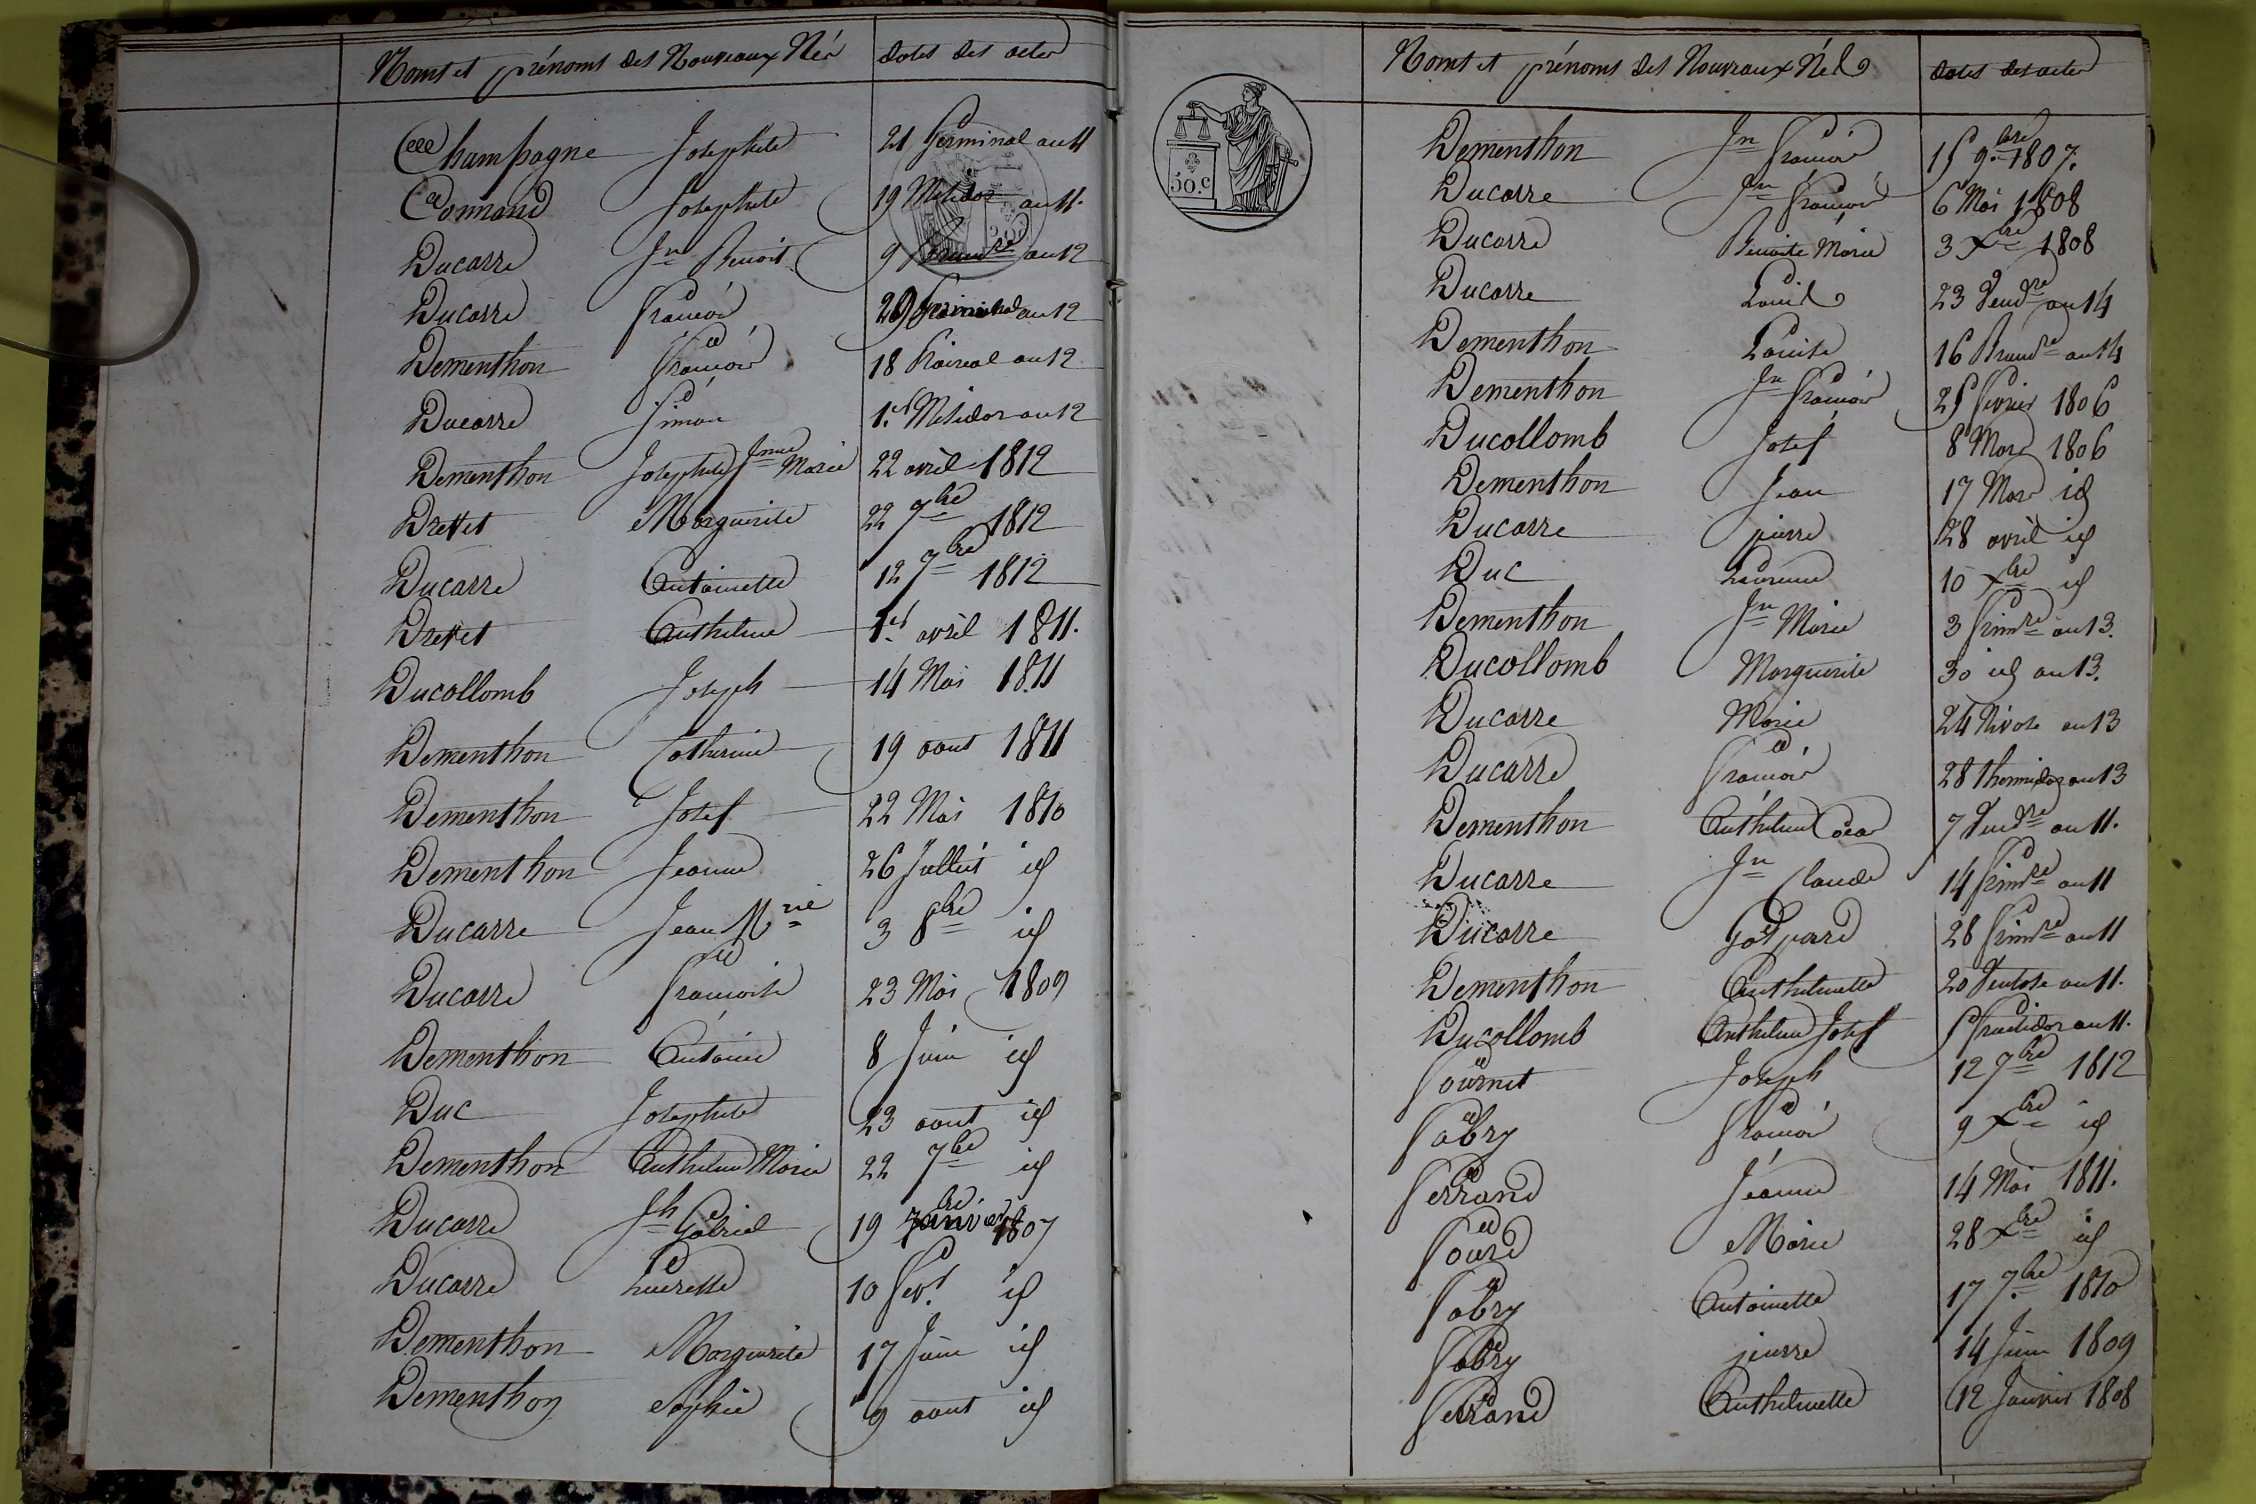 Noms et prénoms des Nouveaux Nés dates des actes
Champagne Josephete 21 Germinal an 11
Cormand Josephete 19 Messidor an 11.
Ducarre Jn Benoit 9 Brumre an 12
Ducarre François 29 Germinal an 12
Dementhon François 18 Praireal an 12
Ducarre Simon 1er Messidor an 12
Dementhon Josephete Jnne Marie 22 avril 1812
Drevet Marguerite 22 7bre 1812
Ducarre Antoinette 12 7bre 1812
Drevet Anthelme 1er avril 1811.
Ducollomb Joseph 14 Mai 1811
Dementhon Catherine 19 aout 1811
Dementhon Josef 22 Mai 1810
Dementhon Jeanne 26 Juillet id
Ducarre Jean Mrie 3 8bre id
Ducarre Françoise 23 Mai 1809
Dementhon Antoine 8 Juin id
Duc Josephete 23 aout id
Dementhon Anthelme Marie 22 7bre id
Ducarre Jh Gabriel 19 Janvier 1807
Ducarre 10 fevr id
Dementhon Marguerite 17 Juin id
Dementhon Sophie 9 aout id
Noms et prénoms des Nouveaux Nés dates des actes
50.c
Dementhon Jn François 15 9bre 1807.
Ducarre Jn François 6 Mai 1808
Ducarre Benoite Marie 3 Xbre 1808
Ducarre Louis 23 Vendre an 14
Dementhon Louise 16 Brumre an 14
Dementhon Jn François 25 fevrier 1806
Ducollomb Josef 8 Mars 1806
Dementhon Jean 17 Mars id
Ducarre pierre 28 avril id
Duc Laurence 10 Xbre id
Dementhon Jn Marie 3 frimre an 13.
Ducollomb Marguerite 30 id an 13.
Ducarre Marie 24 Nivose an 13
Ducarre François 28 thermidor an 13
Dementhon Anthelme 7 Vendre an 11.
Ducarre Jn Claude 14 frimre an 11
Ducarre Gaspard 28 frimre an 11
Dementhon Anthelmette 20 Ventose an 11.
Ducollomb Anthelme Josef 5 fructidor an 11.
fournet Joseph 12 7bre 1812
fabry François 9 Xbre id
ferrand Jeanne 14 Mai 1811.
Marie 28 Xbre id
fabry Antoinette 17 7bre 1810
fabry pierre 14 Juin 1809
ferrand Anthelmette 12 Janvier 1808